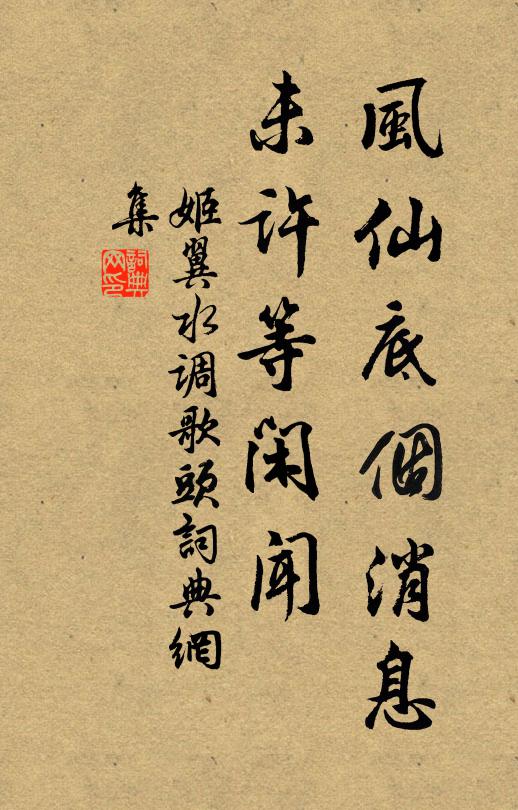 風仙底個消息
未許等閑聞
姬翼水调歌頭詞典網
集
詞典
网印